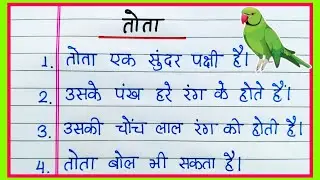 तोता
1. तोता एक सुंदर पक्षी है।
2. उसके पंख हरे रंग के होते हैं।
3. उसकी चोंच लाल रंग की होती है।
4. तोता बोल भी सकता है।